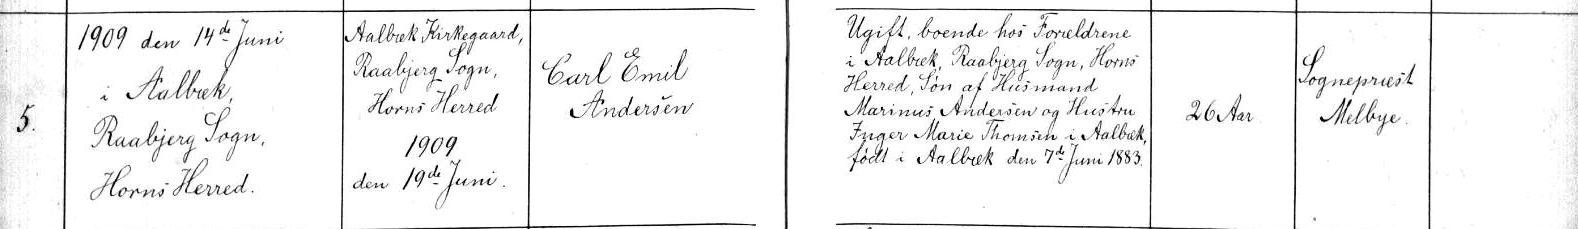 5.
1909 den 14de Juni
i Aalbæk,
Raabjerg Sogn,
Horns Herred.
Aalbæk Kirkegaard,
Raabjerg Sogn,
Horns Herred
1909
den 19de Juni.
Carl Emil
Andersen
Ugift, boende hos Forældrene
i Aalbæk, Raabjerg Sogn, Horns
Herred, Søn af Husmand
Marinus Andersen og Hustru
Inger Marie Thomsen i Aalbæk,
født i Aalbæk den 7de Juni 1883.
26 Aar
Sognepræst
Melbye.